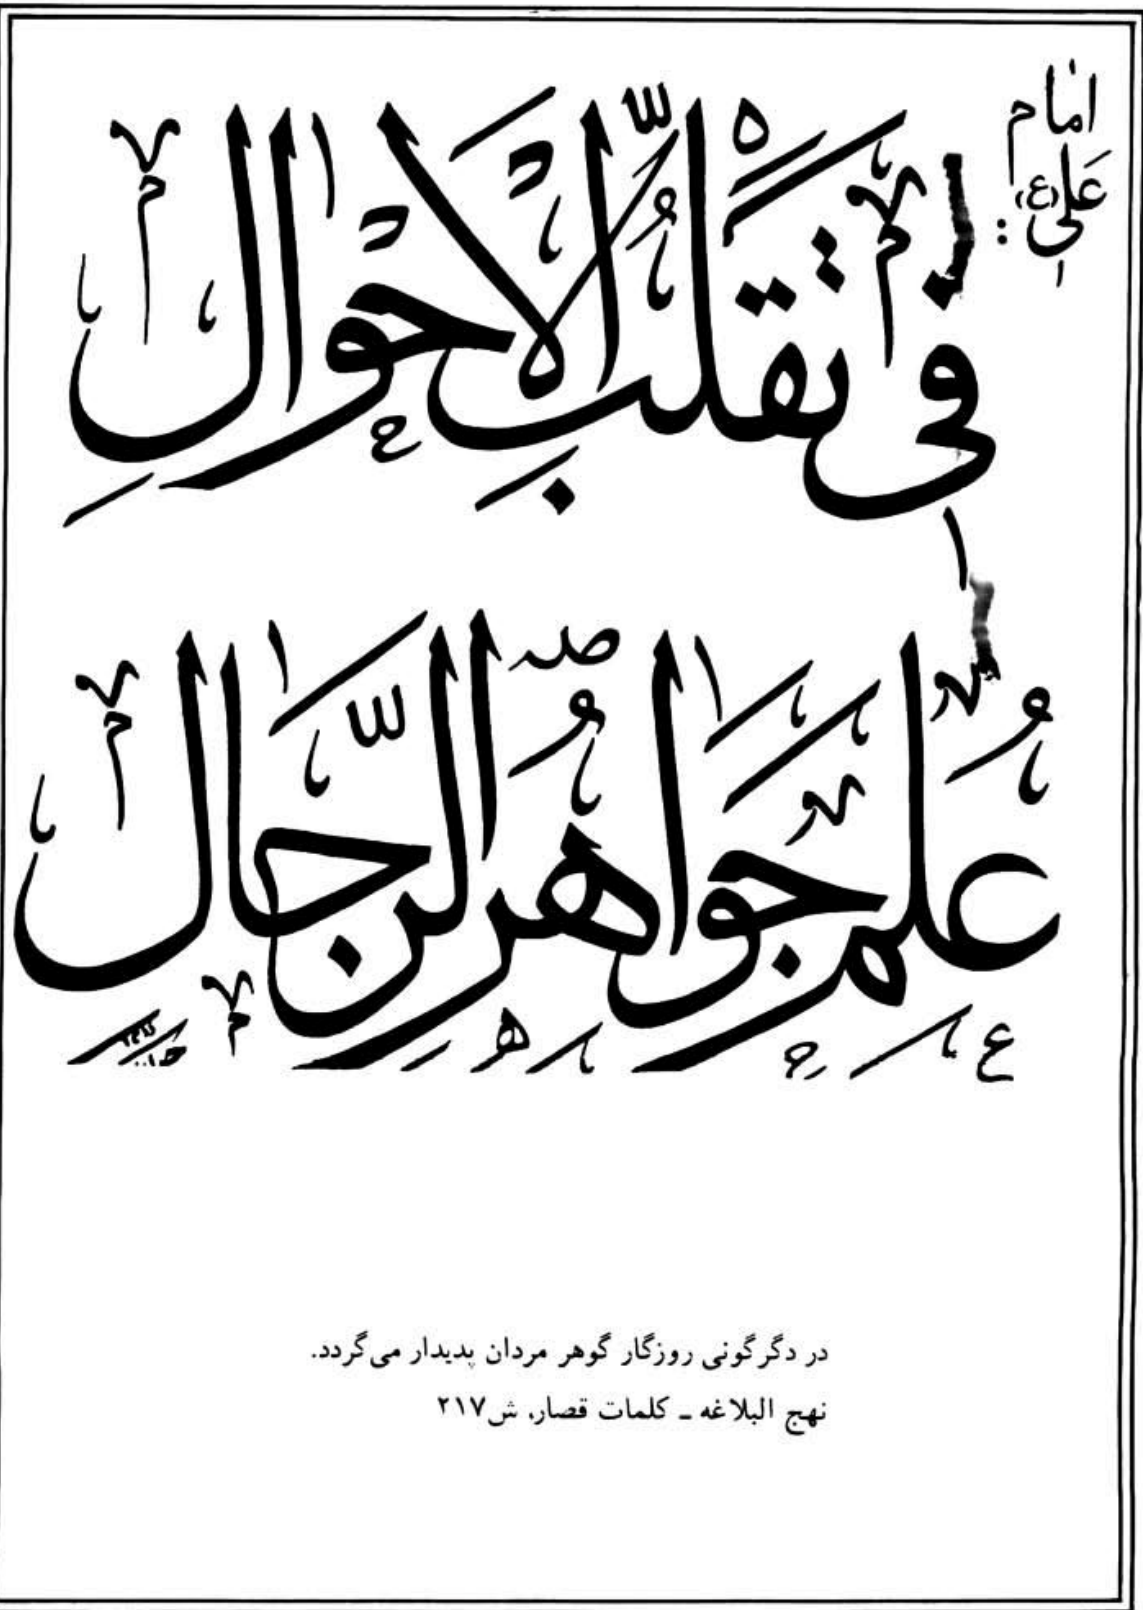 امام
علی (ع):
فِی تَقَلُّبِ الْاَحْوَالِ
عُلِمَ جَوَاهِرُ الرِّجَالِ
در دگرگونی روزگار گوهر مردان پدیدار می‌گردد.
نهج البلاغه ـ کلمات قصار، ش۲۱۷